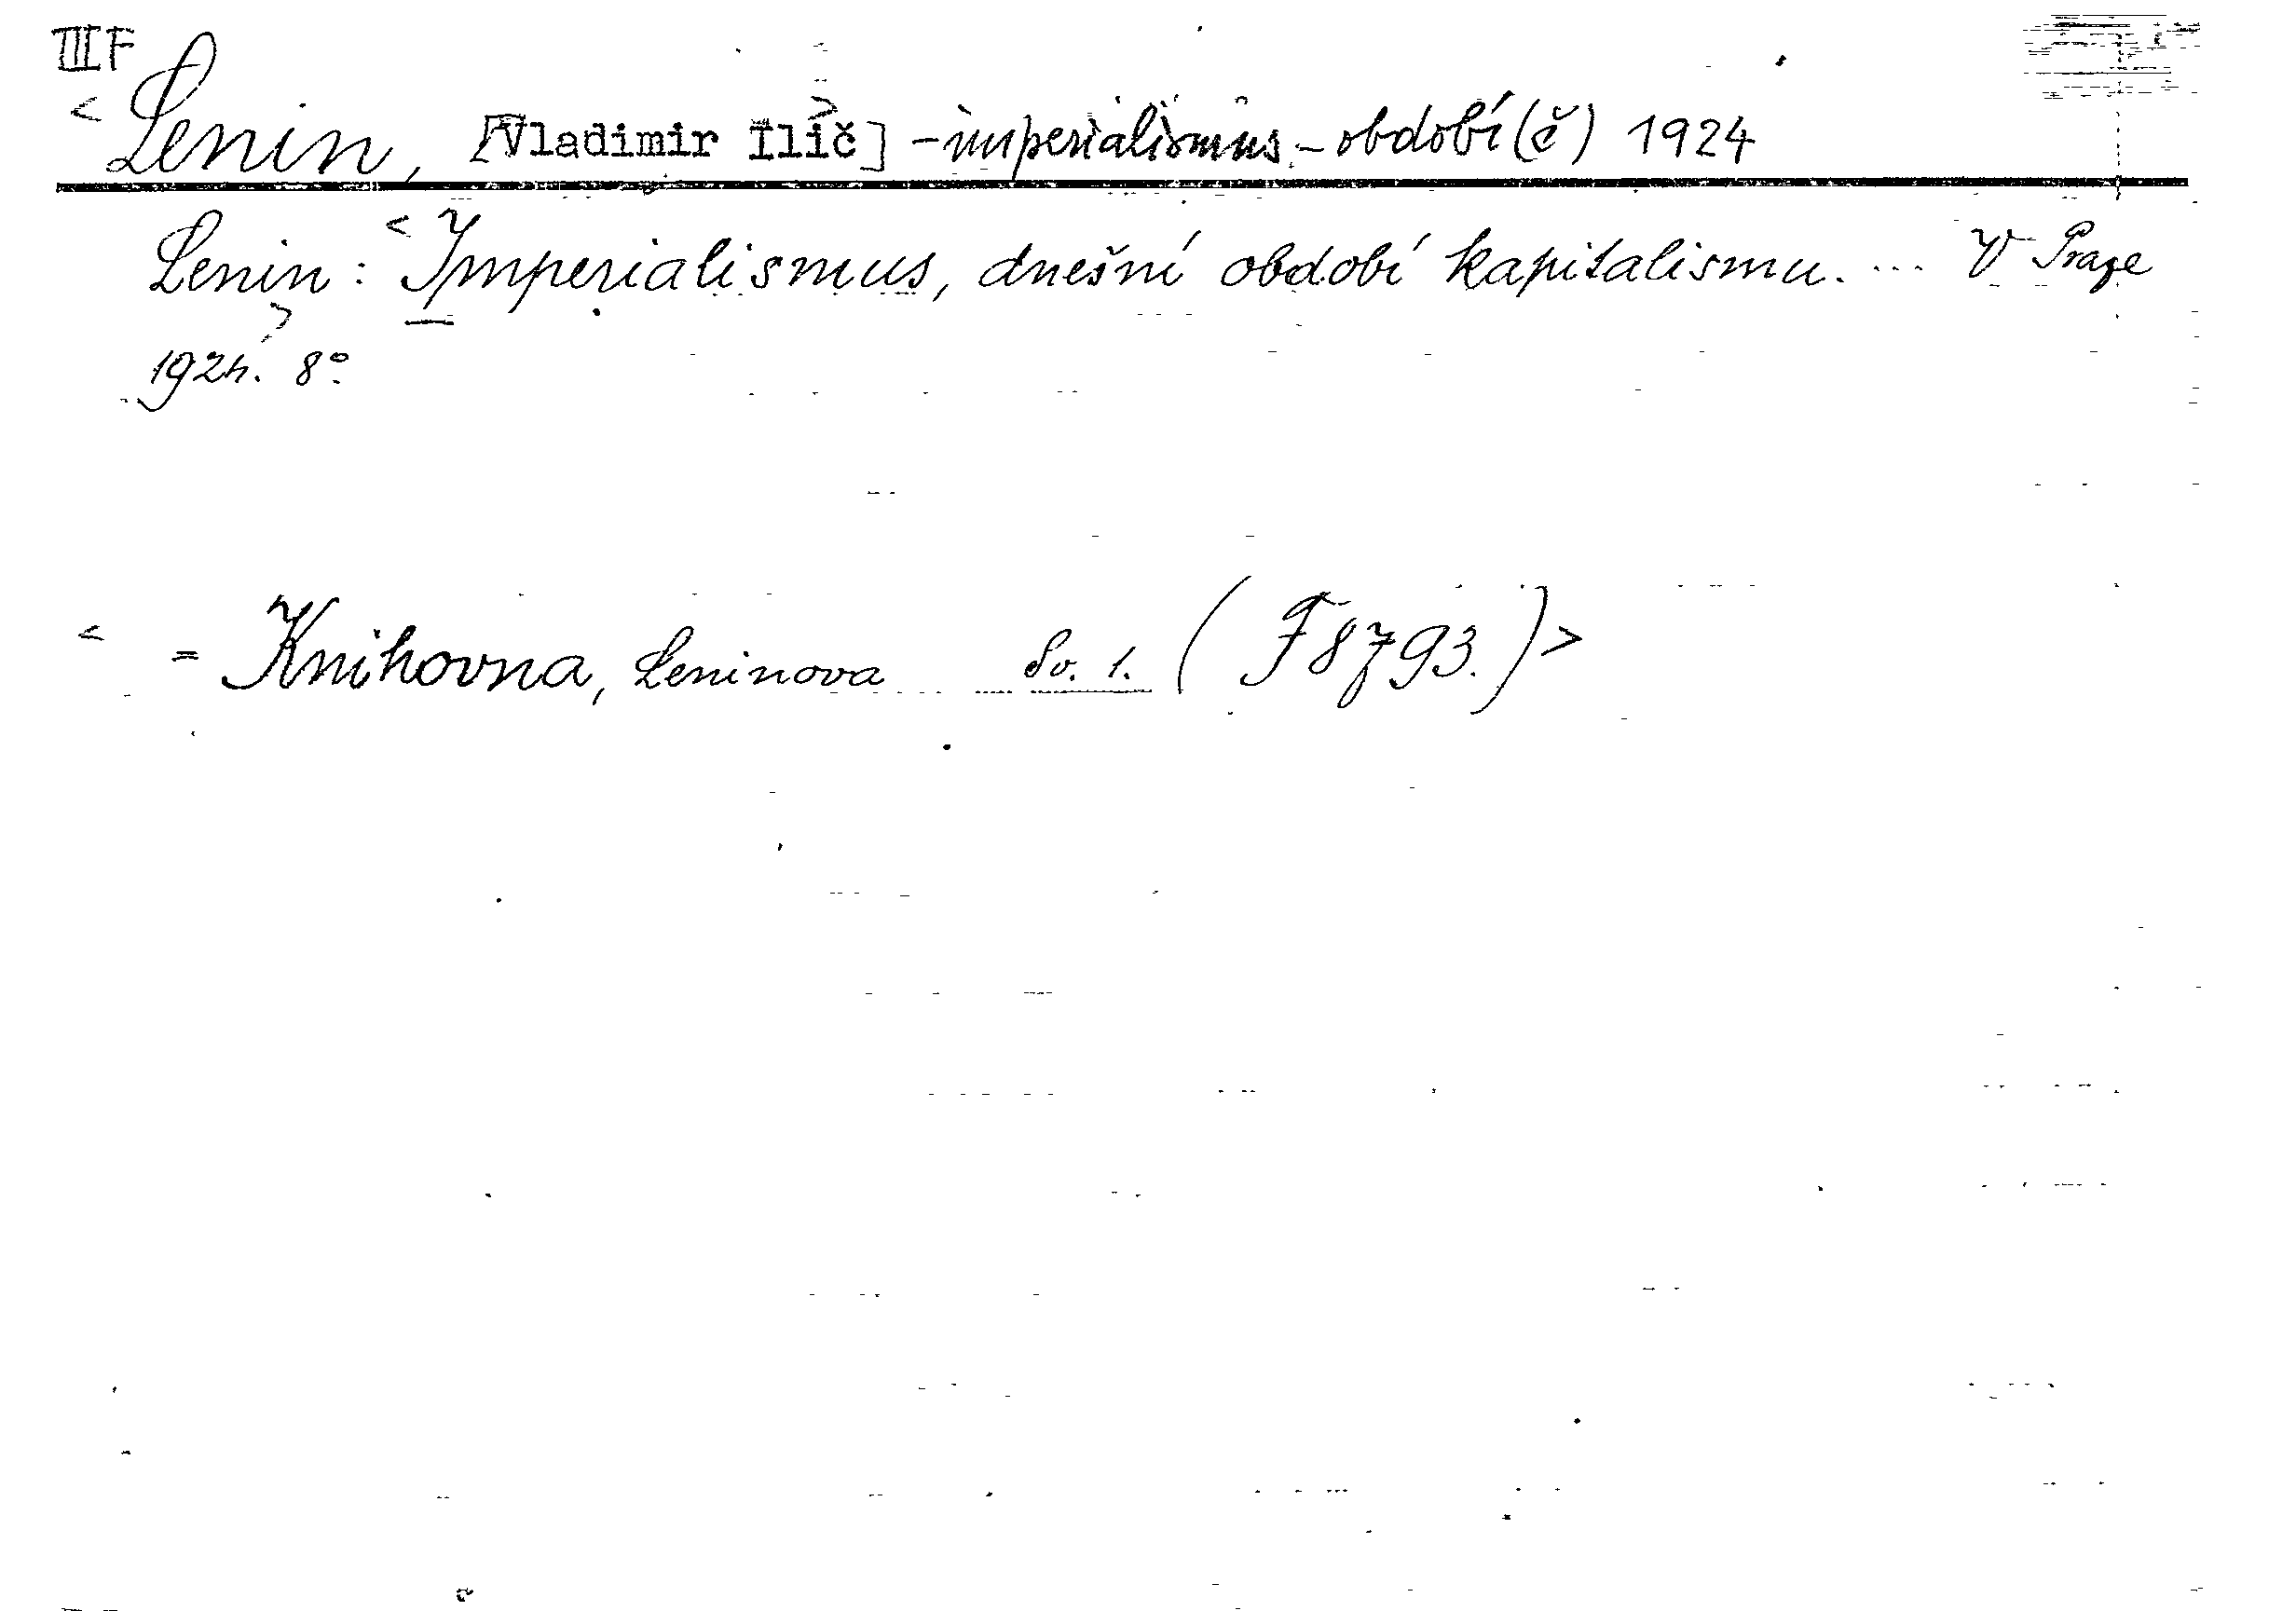 III F
<Lenin, [Vladimir Ilič]> -imperialismus-období(č) 1924
Lenin: <Imperialismus, dnešní období kapitalismu. ... V Praze
1924. 8°
>
< = Knihovna, Leninova Sv. 1. (F 8793.)>